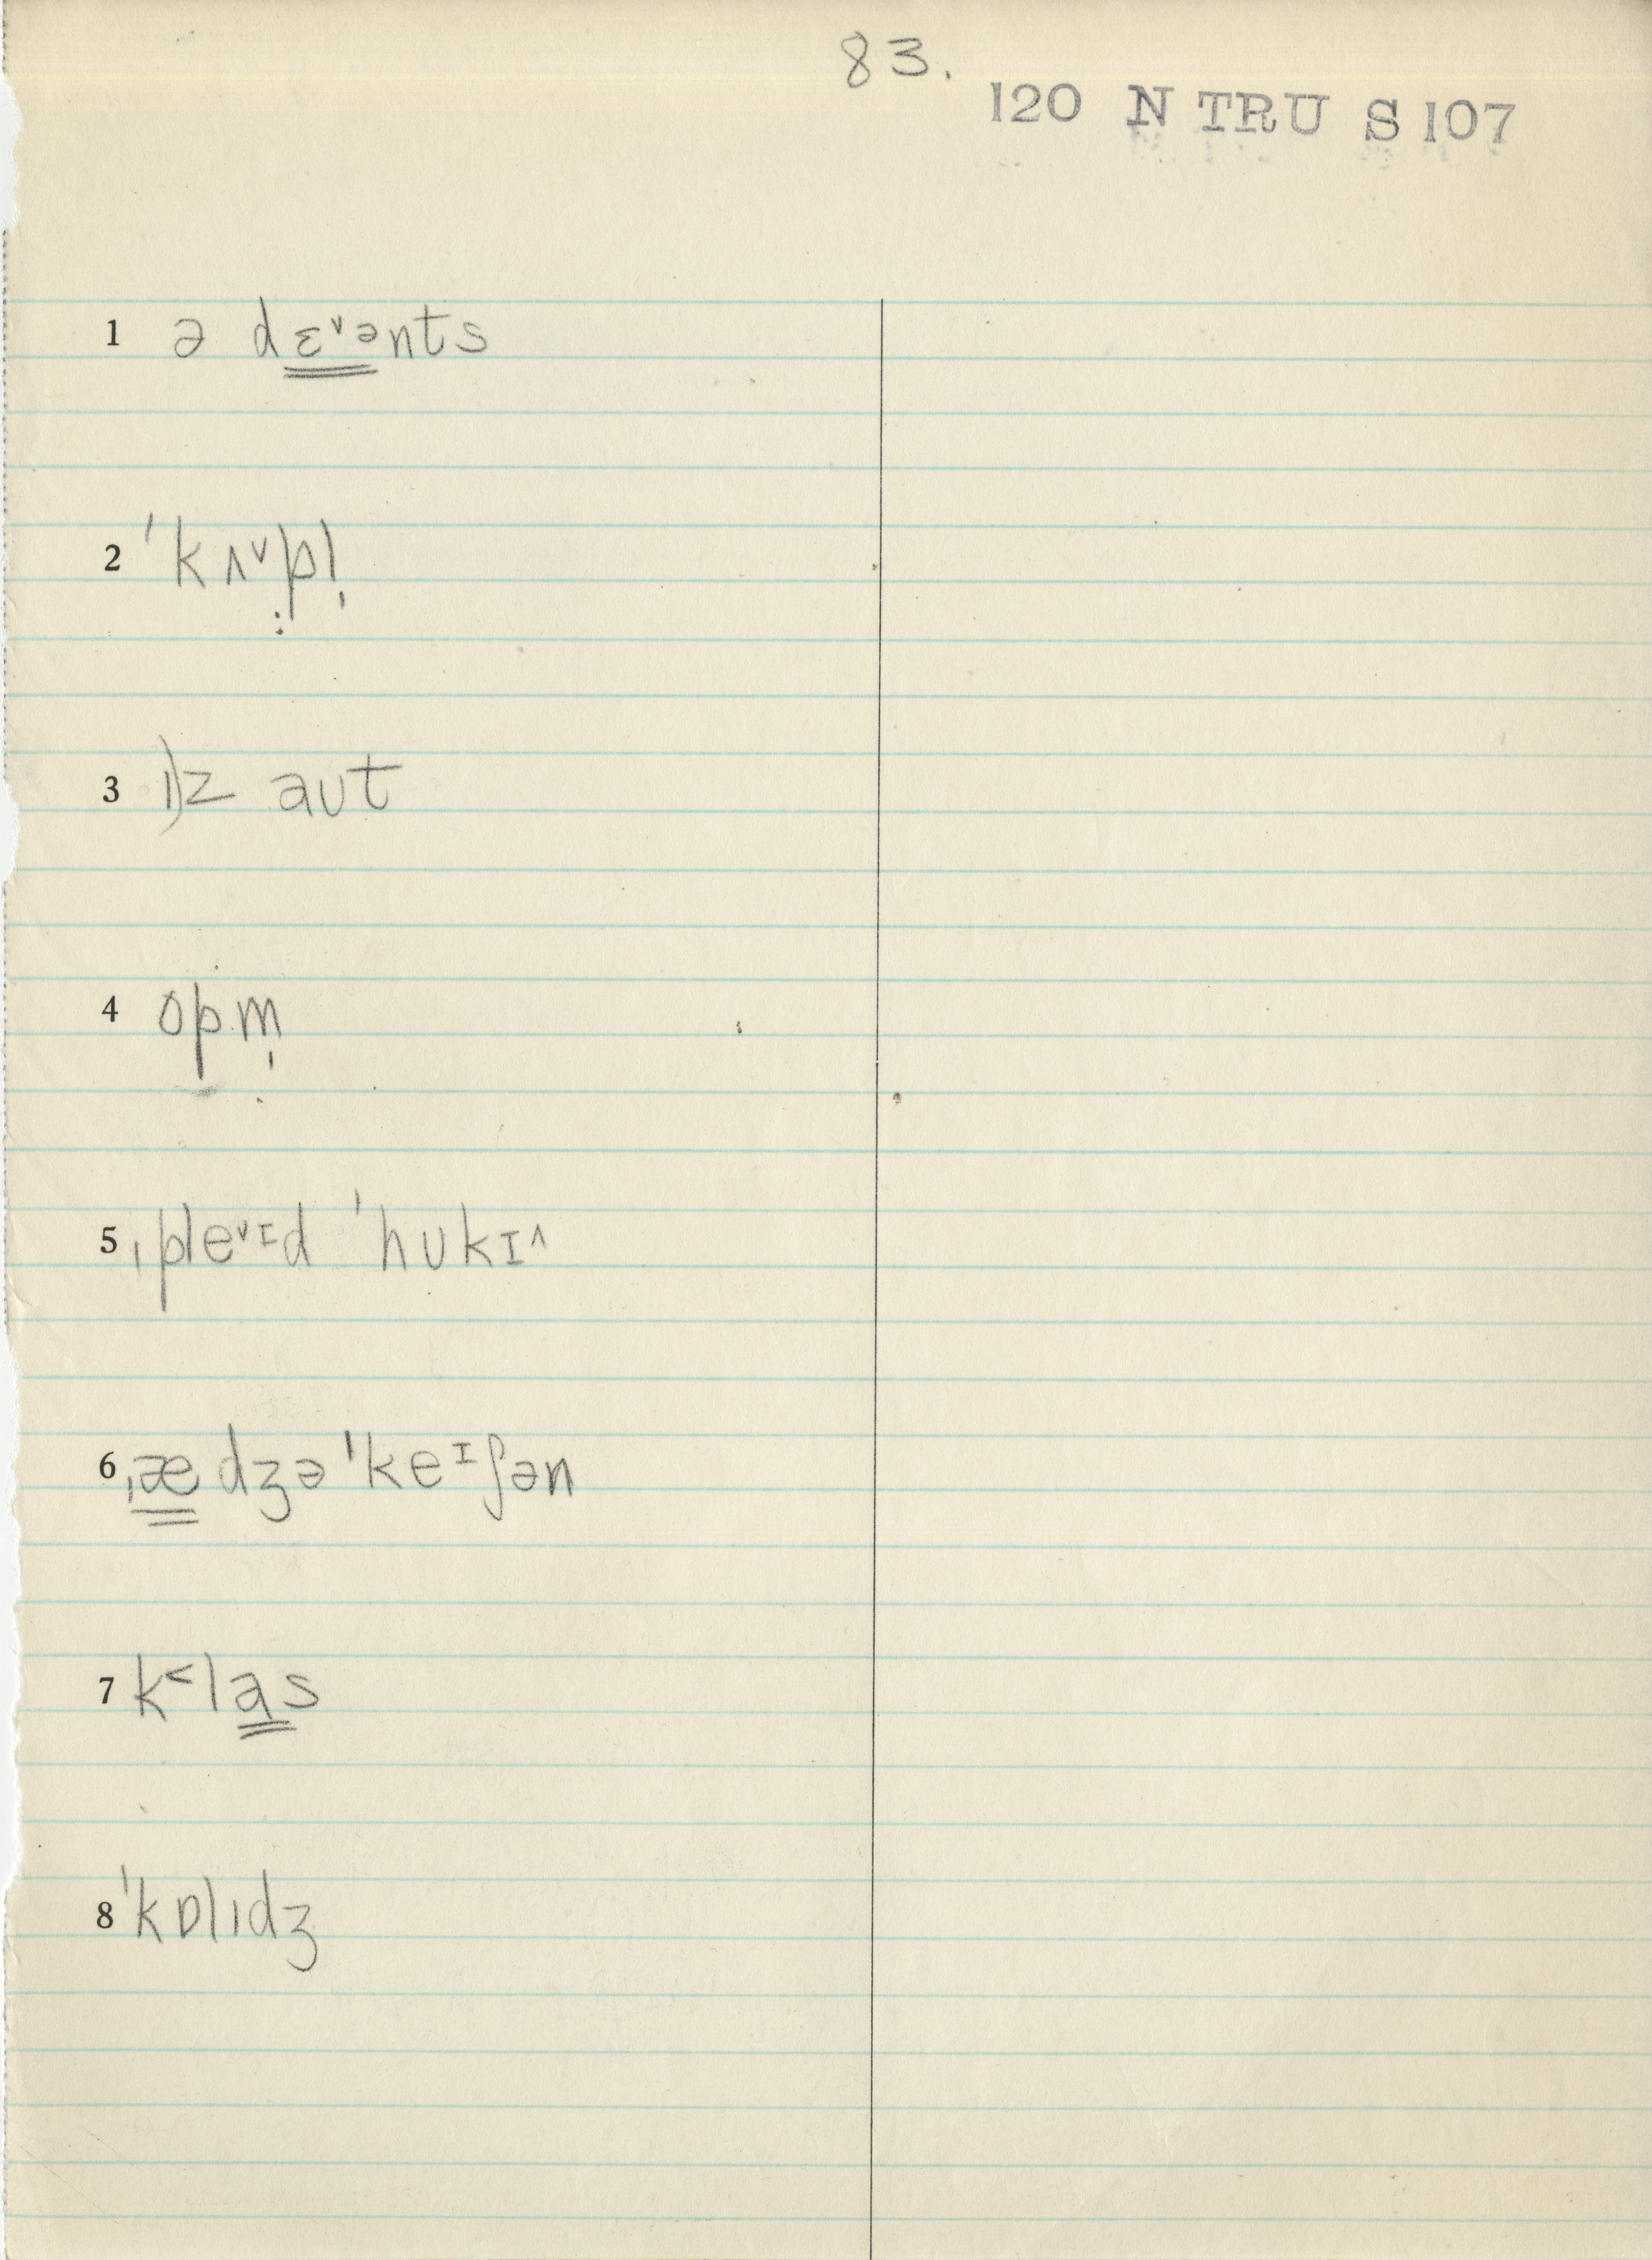 83.
120 N TRU S 107
1 ə dɛ˅ənts
2 ˈkʌ˅pl̩
3 ɪz aʊt
4 opm̩
5 ˌple˅ɪd ˈhʊkɪ˄
6 ˌædʒəˈkeɪʃən
7 k˂las
8 ˈkɒlɪdʒ